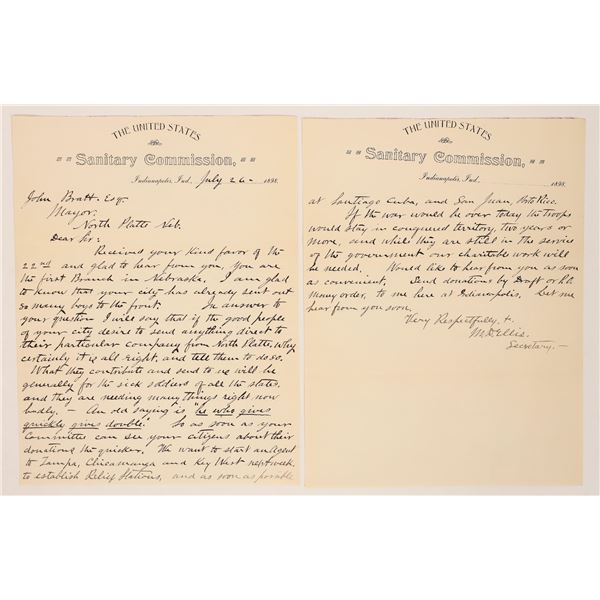 THE UNITED STATES
Sanitary Commission,
Indianapolis, Ind. July 26 - 1898.
John Bratt Esq.
Mayor,
North Platte Neb.
Dear Sir:
Received your kind favor of the
22nd and glad to hear from you, You are
the first Branch in Nebraska. I am glad
to know that your city has already sent out
so many boys to the front. In answer to
your question I will say that if the good people
of your city desire to send anything direct to
their particular company from North Platte, why
certainly it is all right, and tell them to do so.
What they contribute and send to us will be
generally for the sick soldiers of all the states,
and they are needing many things right now
badly. - An old saying is "he who gives
quickly gives double." So as soon as your
Committee can see your citizens about their
donations the quicker. We want to start an Agent
to Tampa, Chicamauga and Key West next week,
to establish Relief Stations, and as soon as possible
THE UNITED STATES
Sanitary Commission,
Indianapolis, Ind. 1898.
at Santiago Cuba, and San Juan, Porto Rico.
If the war would be over today the Troops
would stay in conquered territory, two years or
more, and while they are still in the service
of the government our charitable work will
be needed. Would like to hear from you as soon
as convenient. Send donations by Draft or P.O.
Money order, to me here at Indianapolis. Let me
hear from you soon.
Very Respectfully,
M. D. Ellis.
Secretary. -